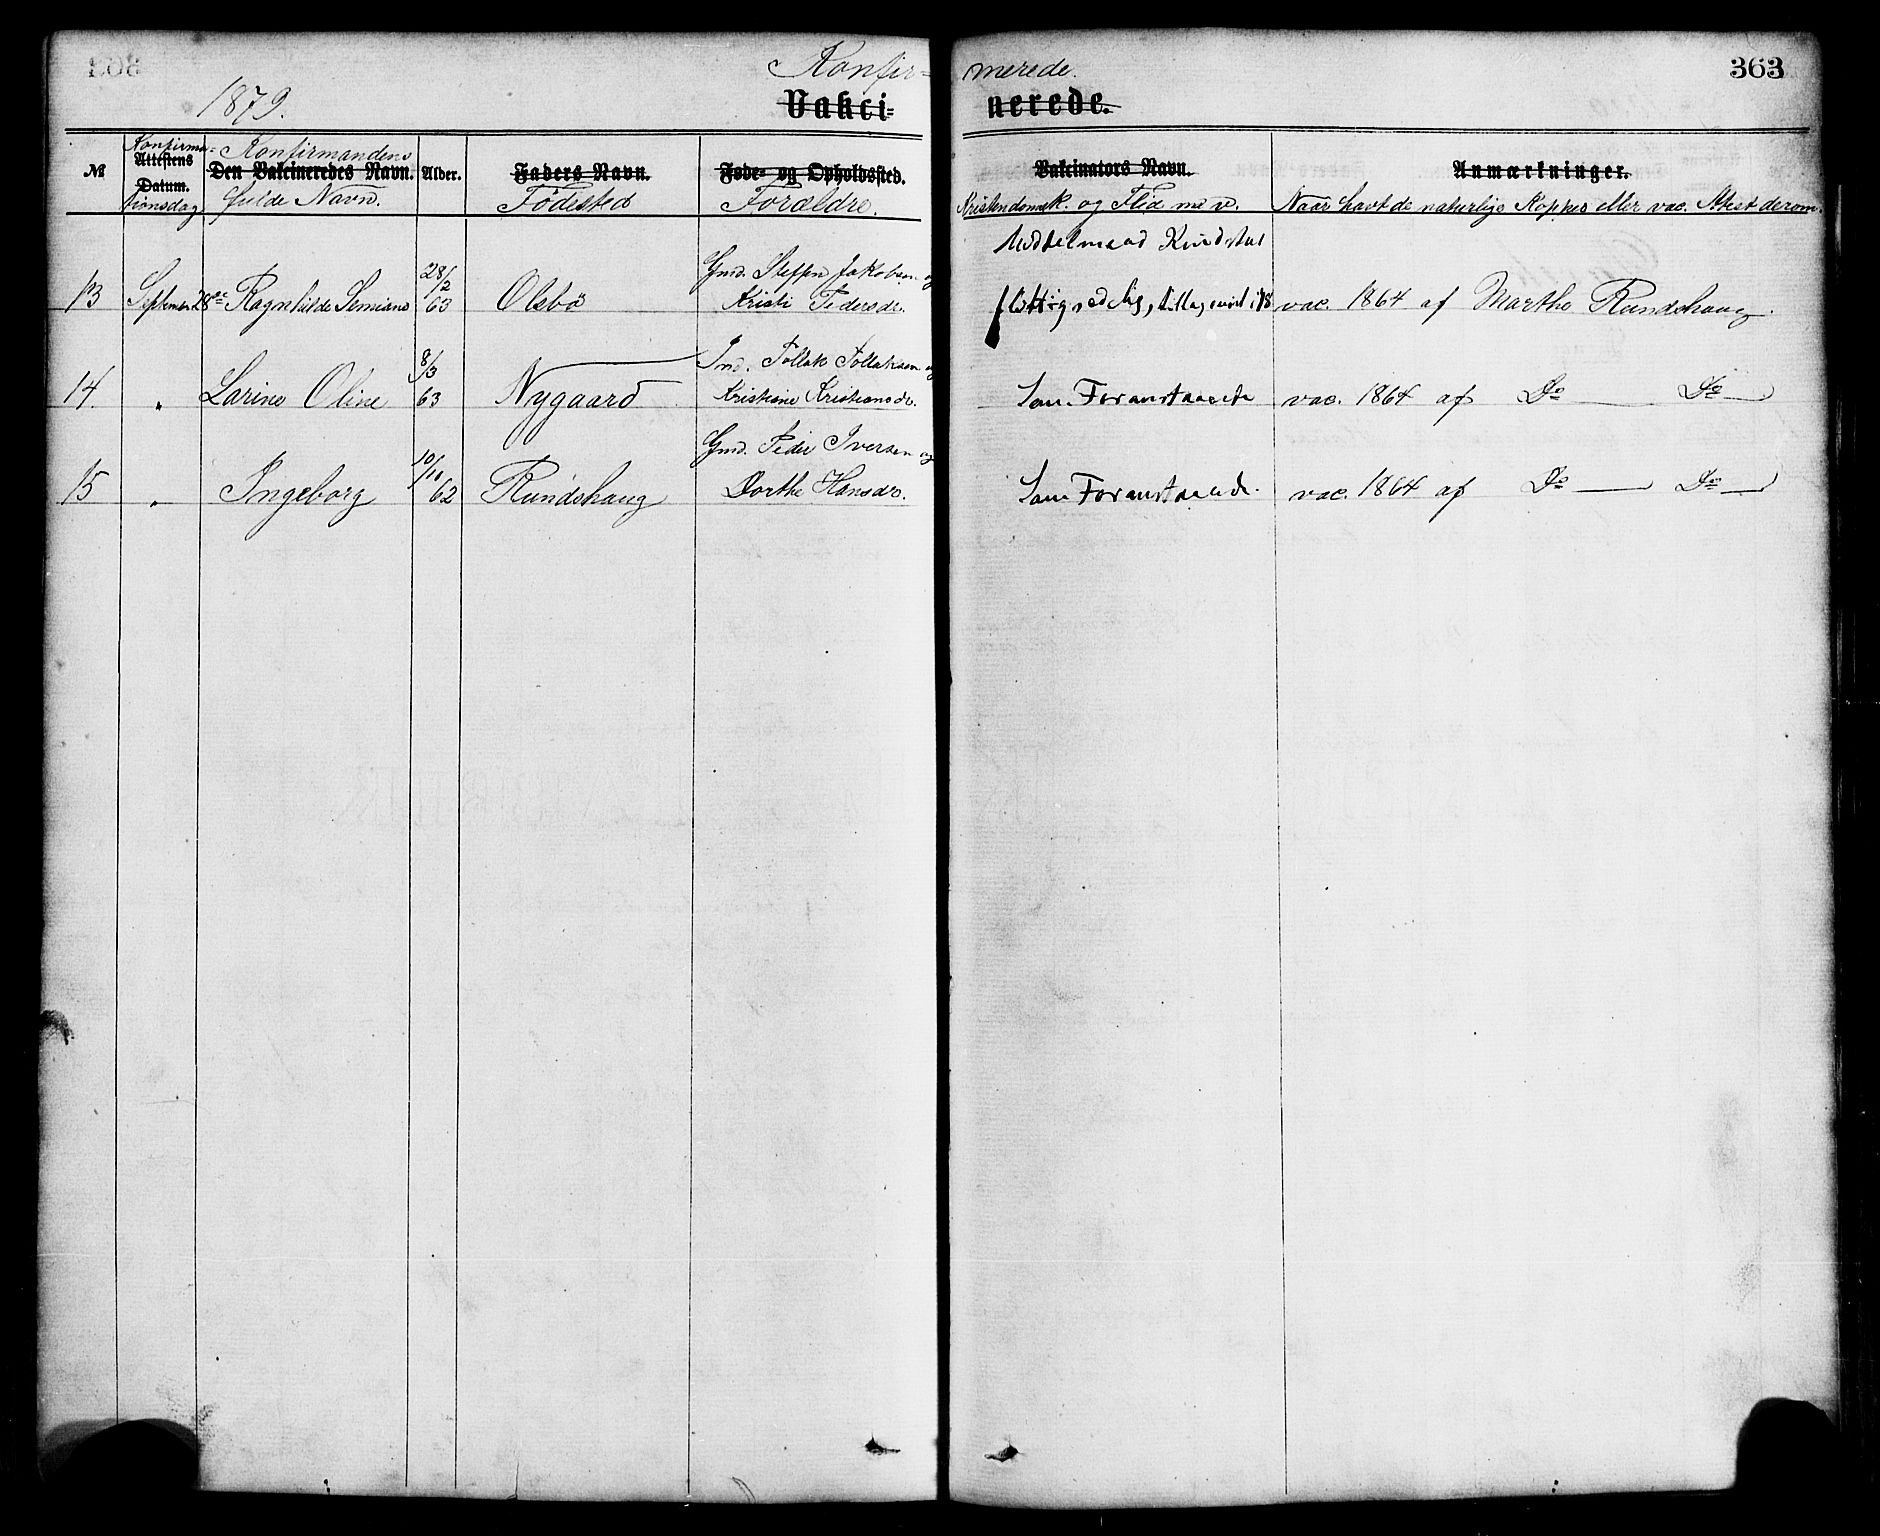 363
1879.
Konfir=
merede.
Vakci=
nerede.
Konfirma=
Attestens
Datum.
tionsdag
№
Konfirmandens
Den Vakcineredes Navn.
fulde Navn.
Alder.
Faders Navn.
Födested
Føde= og Opholdssted.
Forældre.
Vakcinators Navn.
Kristendomsk. og Flid m. v.
Anmærkninger.
Naar havt de naturlige Kopper eller vac. Attest derom.
13 September 28de Ragnhilde Semiane 28/2 63 Olsbö Gmd. Steffen Jakobsen og
Kristi Pedersdr.
Middelmaad Kundskab
flittig, sædelig,
vac. 1864 af Marthe Rundshaug.
14. " Larine Oline 8/3 63 Nygaard Ind. Tollak Tollaksen og
Kristine Kristiansdr.
Som Foranstaaende vac. 1864 af Do Do
15 " Ingeborg 10/10 62 Rundshaug Gmd. Peder Iversen og
Dorthe Hansdr.
Som Foranstaaende. vac. 1864 af Do Do